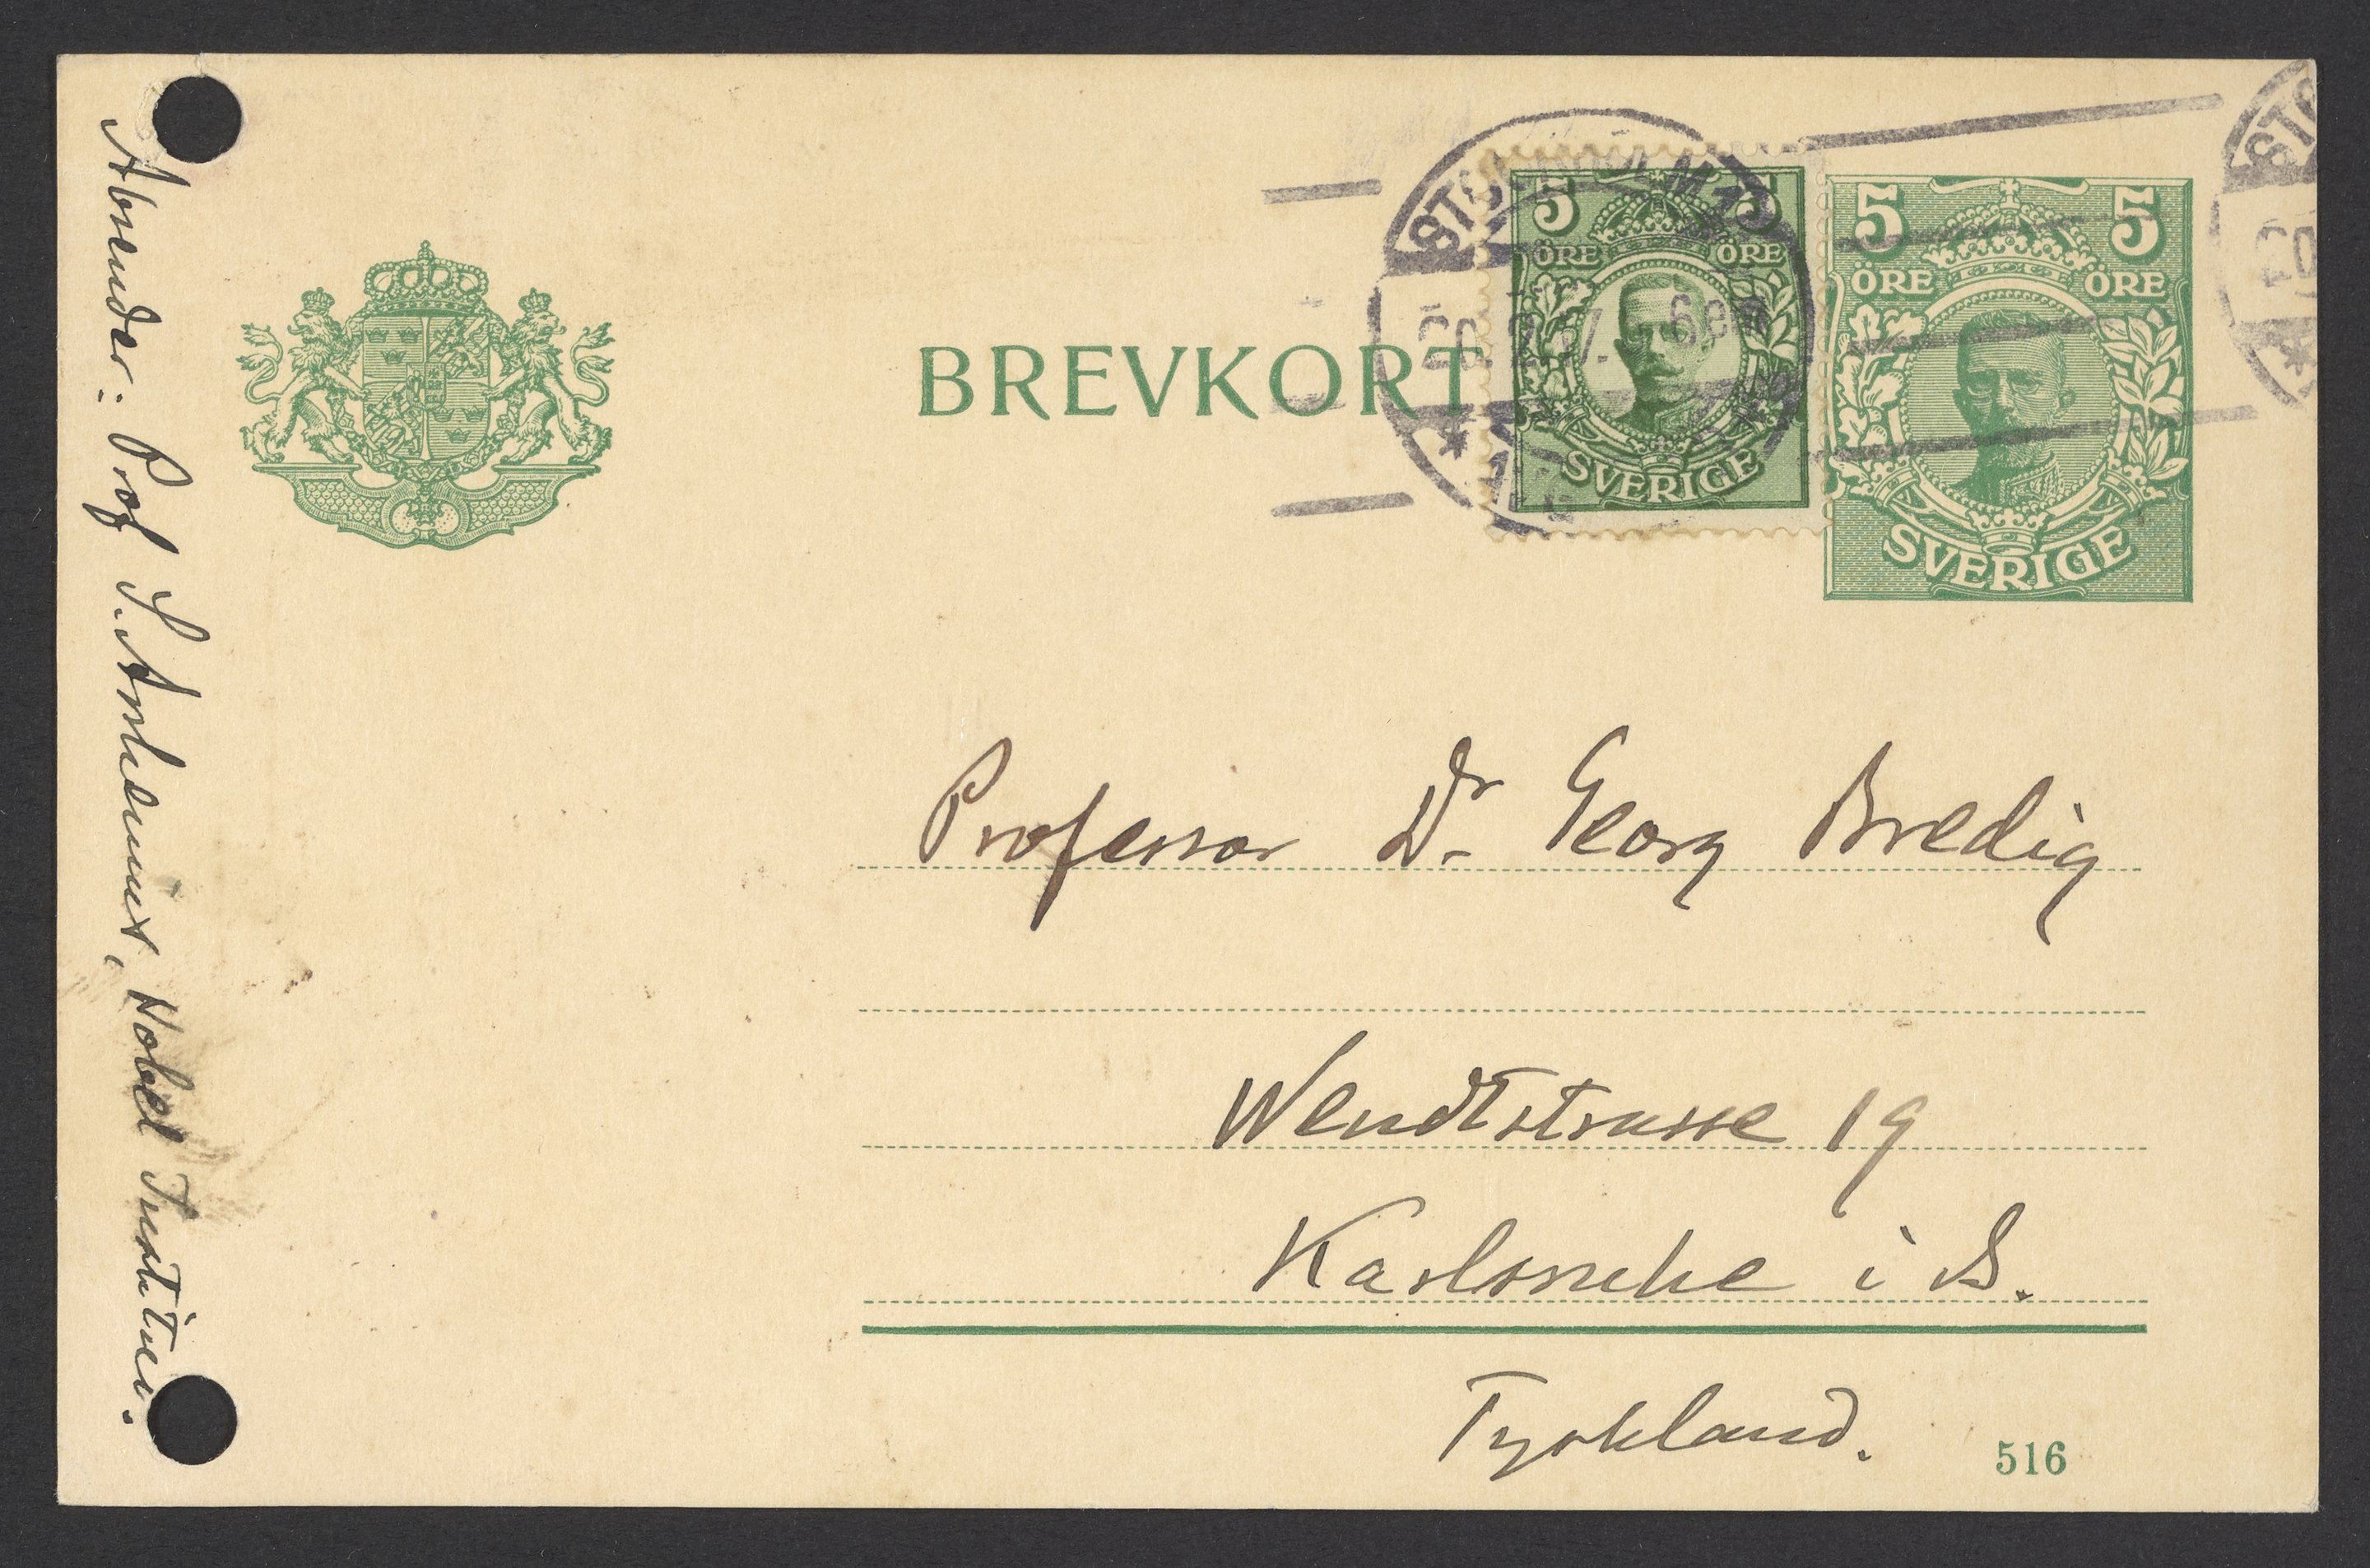 Absender: Prof S. Arrhenius, Nobel Institut.
BREVKORT
STOCKHOLM 1
6 em
5 5
ÖRE ÖRE
SVERIGE
5 5
ÖRE ÖRE
SVERIGE
Professor Dr Georg Bredig
Wendtstrasse 19
Karlsruhe i B.
Tyskland.
516